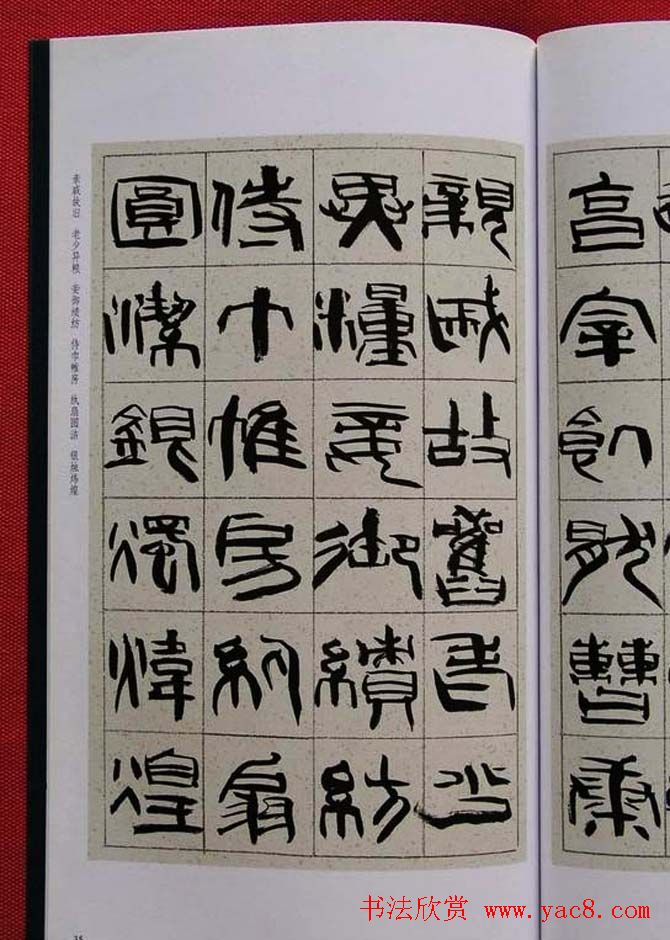 亯宰飢猒曹康
親戚故舊老少
異糧妾御績紡
侍巾帷房紈扇
圓潔銀燭煒煌
亲戚故旧 老少异粮 妾御绩纺 侍巾帷房 纨扇圆洁 银烛炜煌
书法欣赏 www.yac8.com